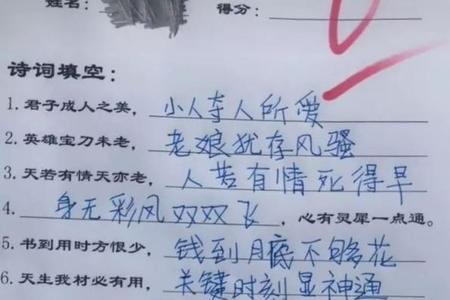 姓名：
得分：
诗词填空：
1. 君子成人之美，小人夺人所爱
2. 英雄宝刀未老，老娘犹存风骚
3. 天若有情天亦老，人若有情死得早
4. 身无彩风双双飞，心有灵犀一点通。
5. 书到用时方恨少，钱到月底不够花
6. 天生我材必有用，关键时刻显神通